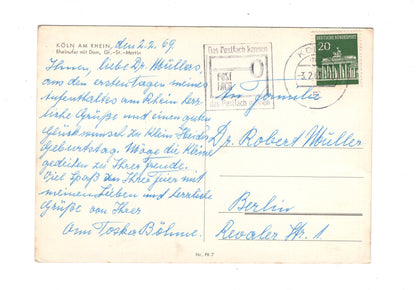 KÖLN AM RHEIN, den 2.2.69.
Rheinufer mit Dom, Gr.-St.-Martin
Ihnen, liebe Dr. Müllers,
aus den ersten Tagen meines
Aufenthaltes am Rhein herz-
liche Grüße und einen guten
Glückwunsch zu klein Heides
Geburtstag. Möge die Kleine
gedeihen zu Ihrer Freude.
Viel Spaß den Ihre Feier mit
meinen Lieben und herzliche
Grüße von Ihrer
Toska Böhme.
Das Postfach kennen
POST
FACH
das Postfach
KÖ
-3.2.
20
DEUTSCHE BUNDESPOST
An Familie
Dr. Robert Müller
Berlin
Revaler Str. 1
Nr. FK 7